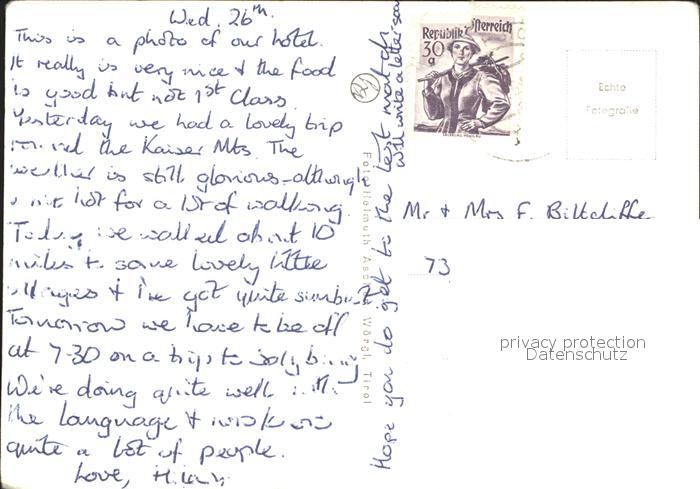 Wed. 26th.
This is a photo of our hotel.
It really is very nice & the food
is good but not 1st Class.
Yesterday we had a lovely trip
round the Kaiser Mts. The
weather is still glorious - although
a bit hot for a lot of walking.
Today we walked about 10
miles to some lovely little
villages & I've got quite sunburnt
Tomorrow we have to be off
at 7-30 on a trip to Salzburg
We're doing quite well with
the language &
quite a lot of people.
Love, Hilary
Hope you do get to the test match.
will write a letter soon
Foto Hollmuth Wörgl, Tirol
Republik Österreich
30 g
Echte
Fotografie
Mr & Mrs F. Biltcliffe
73
privacy protection
Datenschutz